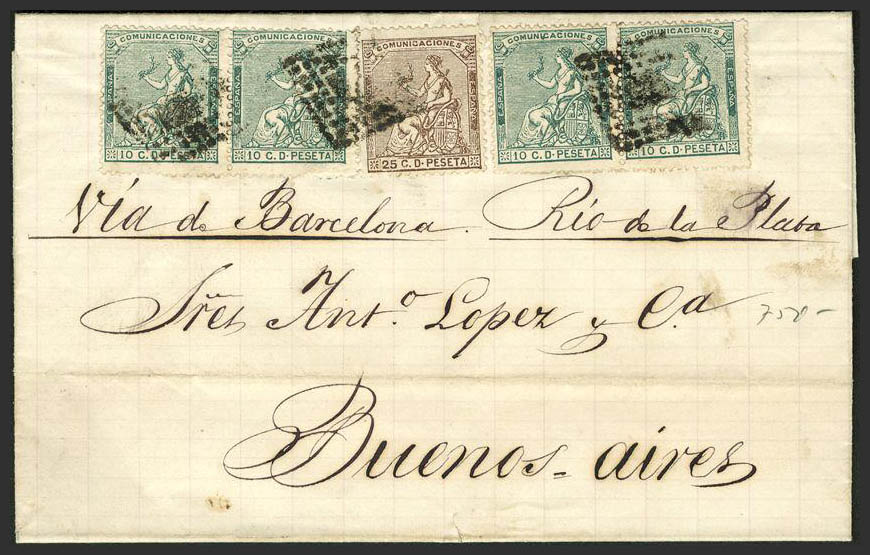 COMUNICACIONES COMUNICACIONES COMUNICACIONES COMUNICACIONES COMUNICACIONES
ESPAÑA ESPAÑA ESPAÑA
10 C. D. PESETA 10 C. D. PESETA 25 C. D. PESETA 10 C. D. PESETA 10 C. D. PESETA
Vía de Barcelona. Río de la Plata
Sres Ant.º Lopez y Cª
750-
Buenos-aires